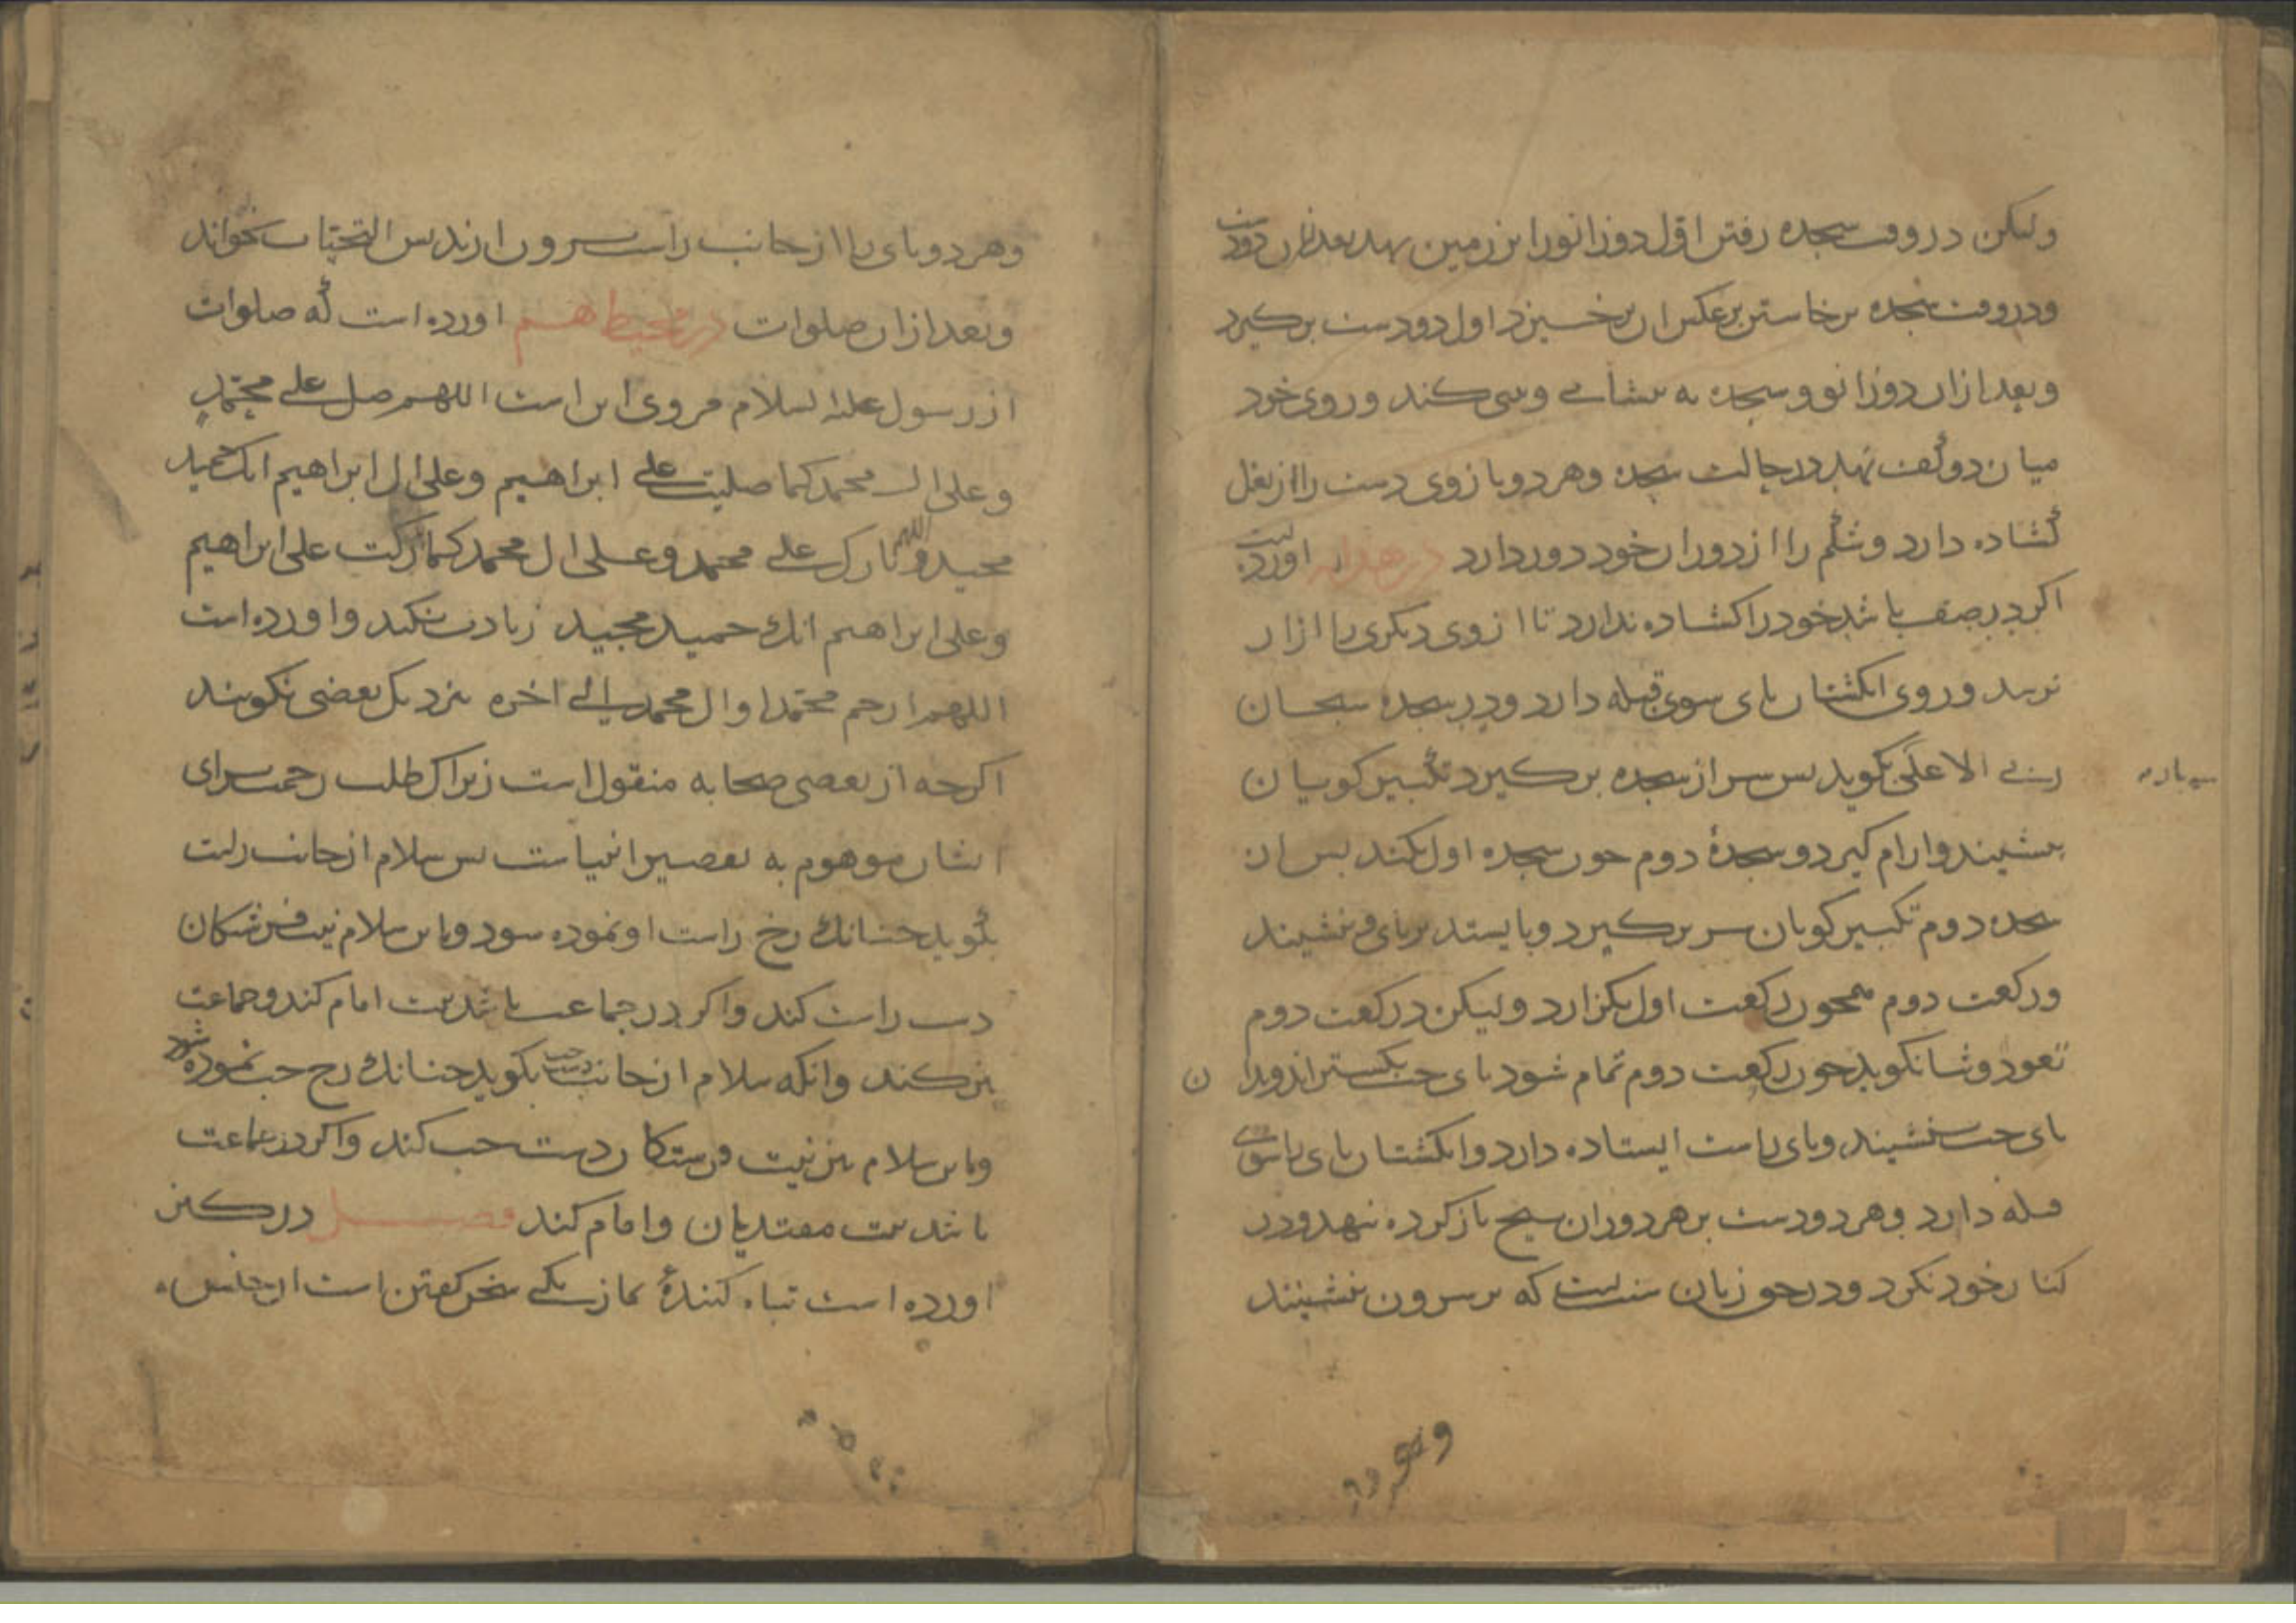 ولیکن در وقت سجده رفتن اول دو زانو را بر زمین نهد بعد ازان دو دست
و در وقت سجده برخاستن برعکس ان برخسیزد اول دو دست برکیرد
و بعد ازان دو زانو و سجده به بیشانے و بینی کند و روی خود
میان دو کف نهد در حالت سجده و هر دو بازوی دست را از بغل
کشاده دارد و شکم را از دو ران خود دور دارد در هدایه اورده است
اکر در صف باشد خود را کشاده ندارد تا ازوی دیکری را ازار
نرسد و روی انکشتان بای سوی قبله دارد و در سجده سبحان
ربے الاعلی بکوید بس سر از سجده برکیرد تکبیر کویان
سه باره
بنشیند و ارام کیرد و سجدۀ دوم جون سجده اول بکند بس از
سجده دوم تکبیر کویان سر برکیرد و بایستد بر بای و ننشیند
و رکعت دوم همجون رکعت اول بکزارد ولیکن در رکعت دوم
تعوذ و ثنا نکوید جون رکعت دوم تمام شود بای جب بکستراند و بدان
بای جب بنشیند و بای راست ایستاده دارد و انکشتان بای راسوی
قبله دارد و هر دو دست بر هر دو ران باز کرده نهد و در
کنار خود نکرد و در حق زنان سنت است که بر سرون بنشینند
وهر دو
و هر دو بای را از جانب راست بیرون ارند بس التحیات بخواند
و بعد ازان صلوات در محیط هم اورده است که صلوات
از رسول علیه السلام مروی این است اللهم صل علے محمد
و علی ال محمد کما صلیت علے ابراهیم و علی ال ابراهیم انک حمید
مجید اللهم و بارک علے محمد و علی ال محمد کما بارکت علی ابراهیم
و علی ابراهیم انک حمید مجید زیادت نکند و اورده است
اللهم ارحم محمدا و ال محمد الے اخره نزدیک بعضی نکویند
اکرجه از بعضی صحابه منقول است زیراک طلب رحمت برای
ایشان موهوم به تقصیر انبیاست بس سلام از جانب راست
بکوید جنانک رخ راست او نموده شود و باین سلام نیت فرشتکان
دست راست کند و اکر در جماعت باشد نیت امام کند و جماعت
نیز کند و انکه سلام از جانب جب بکوید جنانک رخ جب نموده شود
و باین سلام نیز نیت فرستکان دست جب کند و اکر در جماعت
باشد نیت مقتدیان و امام کند فصل در کنز
اورده است تباه کنندۀ نماز یکے سخن کفتن است